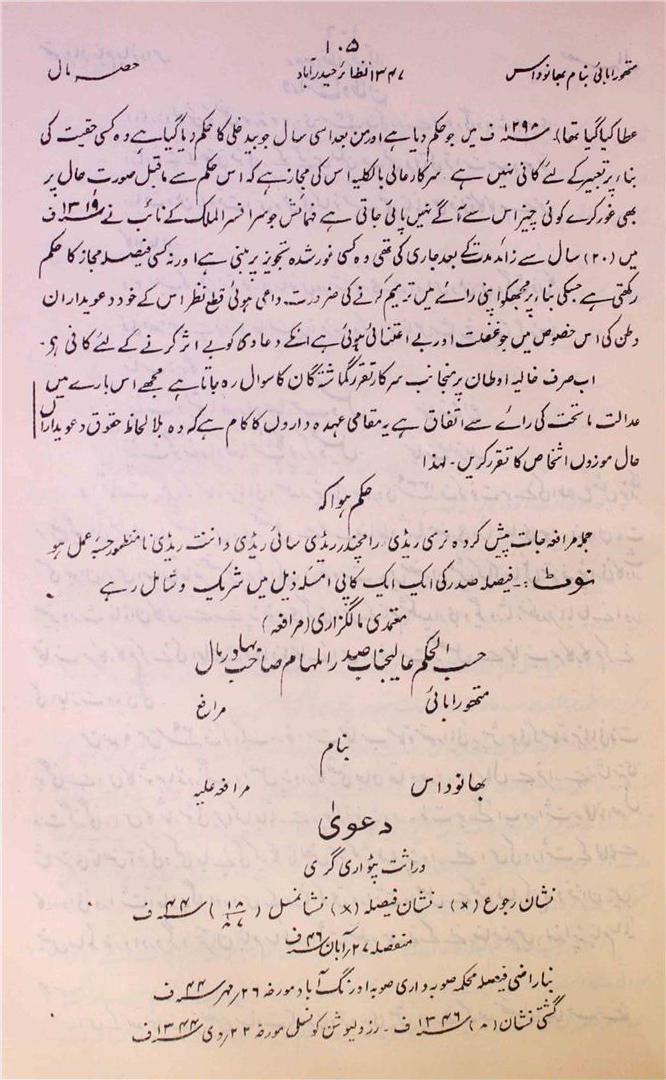 ۱۰۵
متھورابائی بنام بھانوداس ۱۳۴۷ نظائر حیدرآباد حصہ مال
عطا کیا گیا تھا)۔ ۱۲۹۸ ف میں جو حکم دیا ہے اور من بعد اسی سال جو بید علی کا حکم دیا گیا ہے وہ کسی حقیت کی
بناء پر تعبیر کے لئے کافی نہیں ہے۔ سرکار عالی بالکلیہ اس کی مجاز ہے کہ اس حکم سے ماقبل صورت حال پر
بھی غور کرے کوئی چیز اس سے آگے نہیں پائی جاتی ہے فہمائش جو سر افسر الملک کے نائب نے ۱۳۱۹ ف
میں (۲۰) سال سے زائد مدت کے بعد جاری کی تھی وہ کسی غور شدہ تجویز پر مبنی ہے اور نہ کسی فیصلہ مجاز کا حکم
رکھتی ہے جسکی بناء پر مجھکو اپنی رائے میں ترمیم کرنے کی ضرورت داعی ہوئی قطع نظر اس کے خود دعویداران
وطن کی اس خصوص میں جو غفلت اور بے اعتنائی ہوئی ہے انکے دعاوی کو بے اثر کرنے کے لئے کافی ہو۔
اب صرف خالیہ اوطان پر منجانب سرکار تقرر گماشتگان کا سوال رہ جاتا ہے مجھے اس بارے میں
عدالت ماتحت کی رائے سے اتفاق ہے یہ مقامی عہدہ داروں کا کام ہے کہ وہ بلا لحاظ حقوق دعویداران
حال موزوں اشخاص کا تقرر کریں۔ لہذا
حکم ہوا کہ
جملہ مرافعہ جات پیش کردہ نرسی ریڈی، رامچندر ریڈی سائی ریڈی و اننت ریڈی نامنظور حسبہ عمل ہو
نوٹ:۔ فیصلہ صدر کی ایک ایک کاپی امثلہ ذیل میں شریک و شامل رہے
معتمدی مالگزاری (مرافعہ)
حسب الحکم عالیجناب صدر المہام صاحب بہادر مال
متھورابائی مرافع
بنام
بھانوداس مرافعہ علیہ
دعویٰ
وراثت پٹواری گری
نشان رجوع (×)۔ نشان فیصلہ (×) نشانمسل (۱۸/۸۷) ۴۴ ف
منفصلہ ۲۷؍آبان ۴۶ ف
بناراضی فیصلہ محکمہ صوبہ داری صوبہ اورنگ آباد مورخہ ۲۶؍مہر ۴۴ ف
گشتی نشان (۸) ۱۳۴۶ ف۔ رزولیوشن کونسلی مورخہ ۲۲؍دی ۱۳۴۴ ف